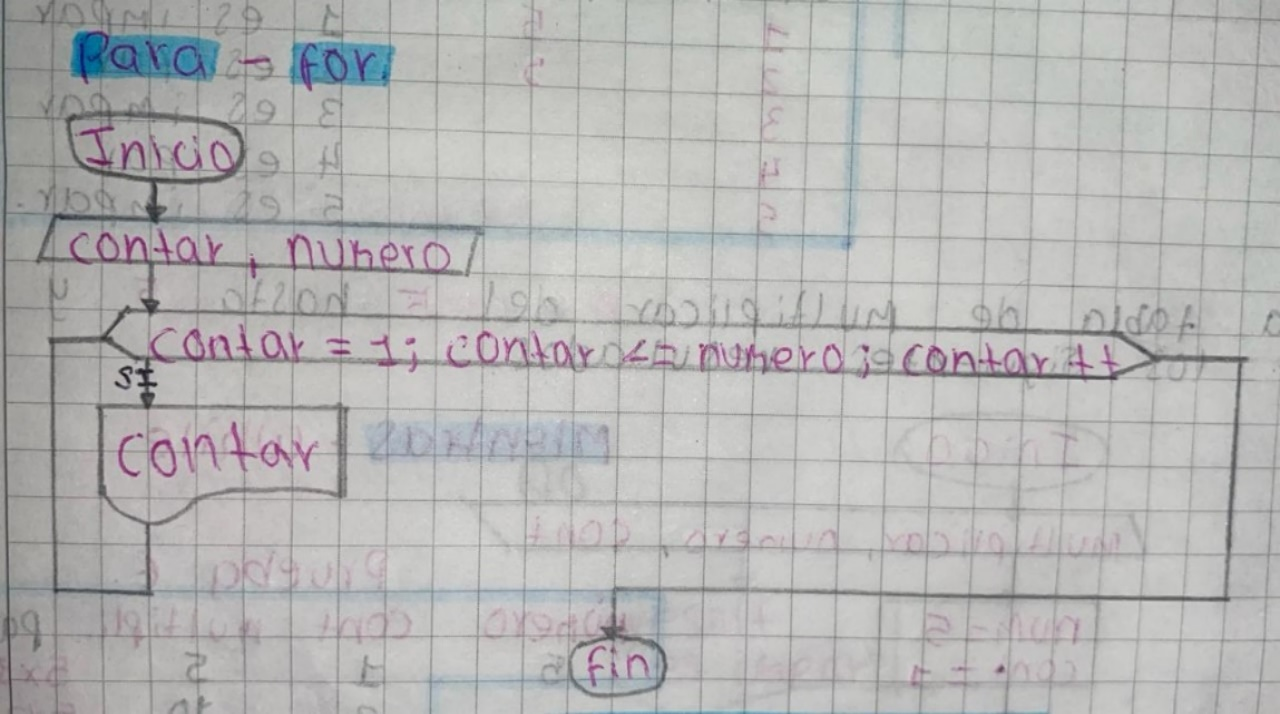 Para - for
Inicio
contar, numero
contar = 1; contar <= numero; contar ++
SI
contar
fin